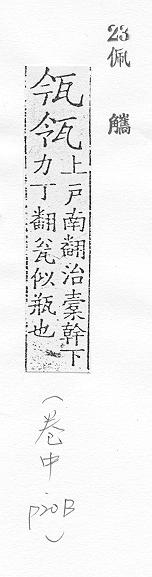 23
佩觿
瓴
上戶南翻治橐幹下
力丁翻瓮似瓶也
(卷中
p20B)